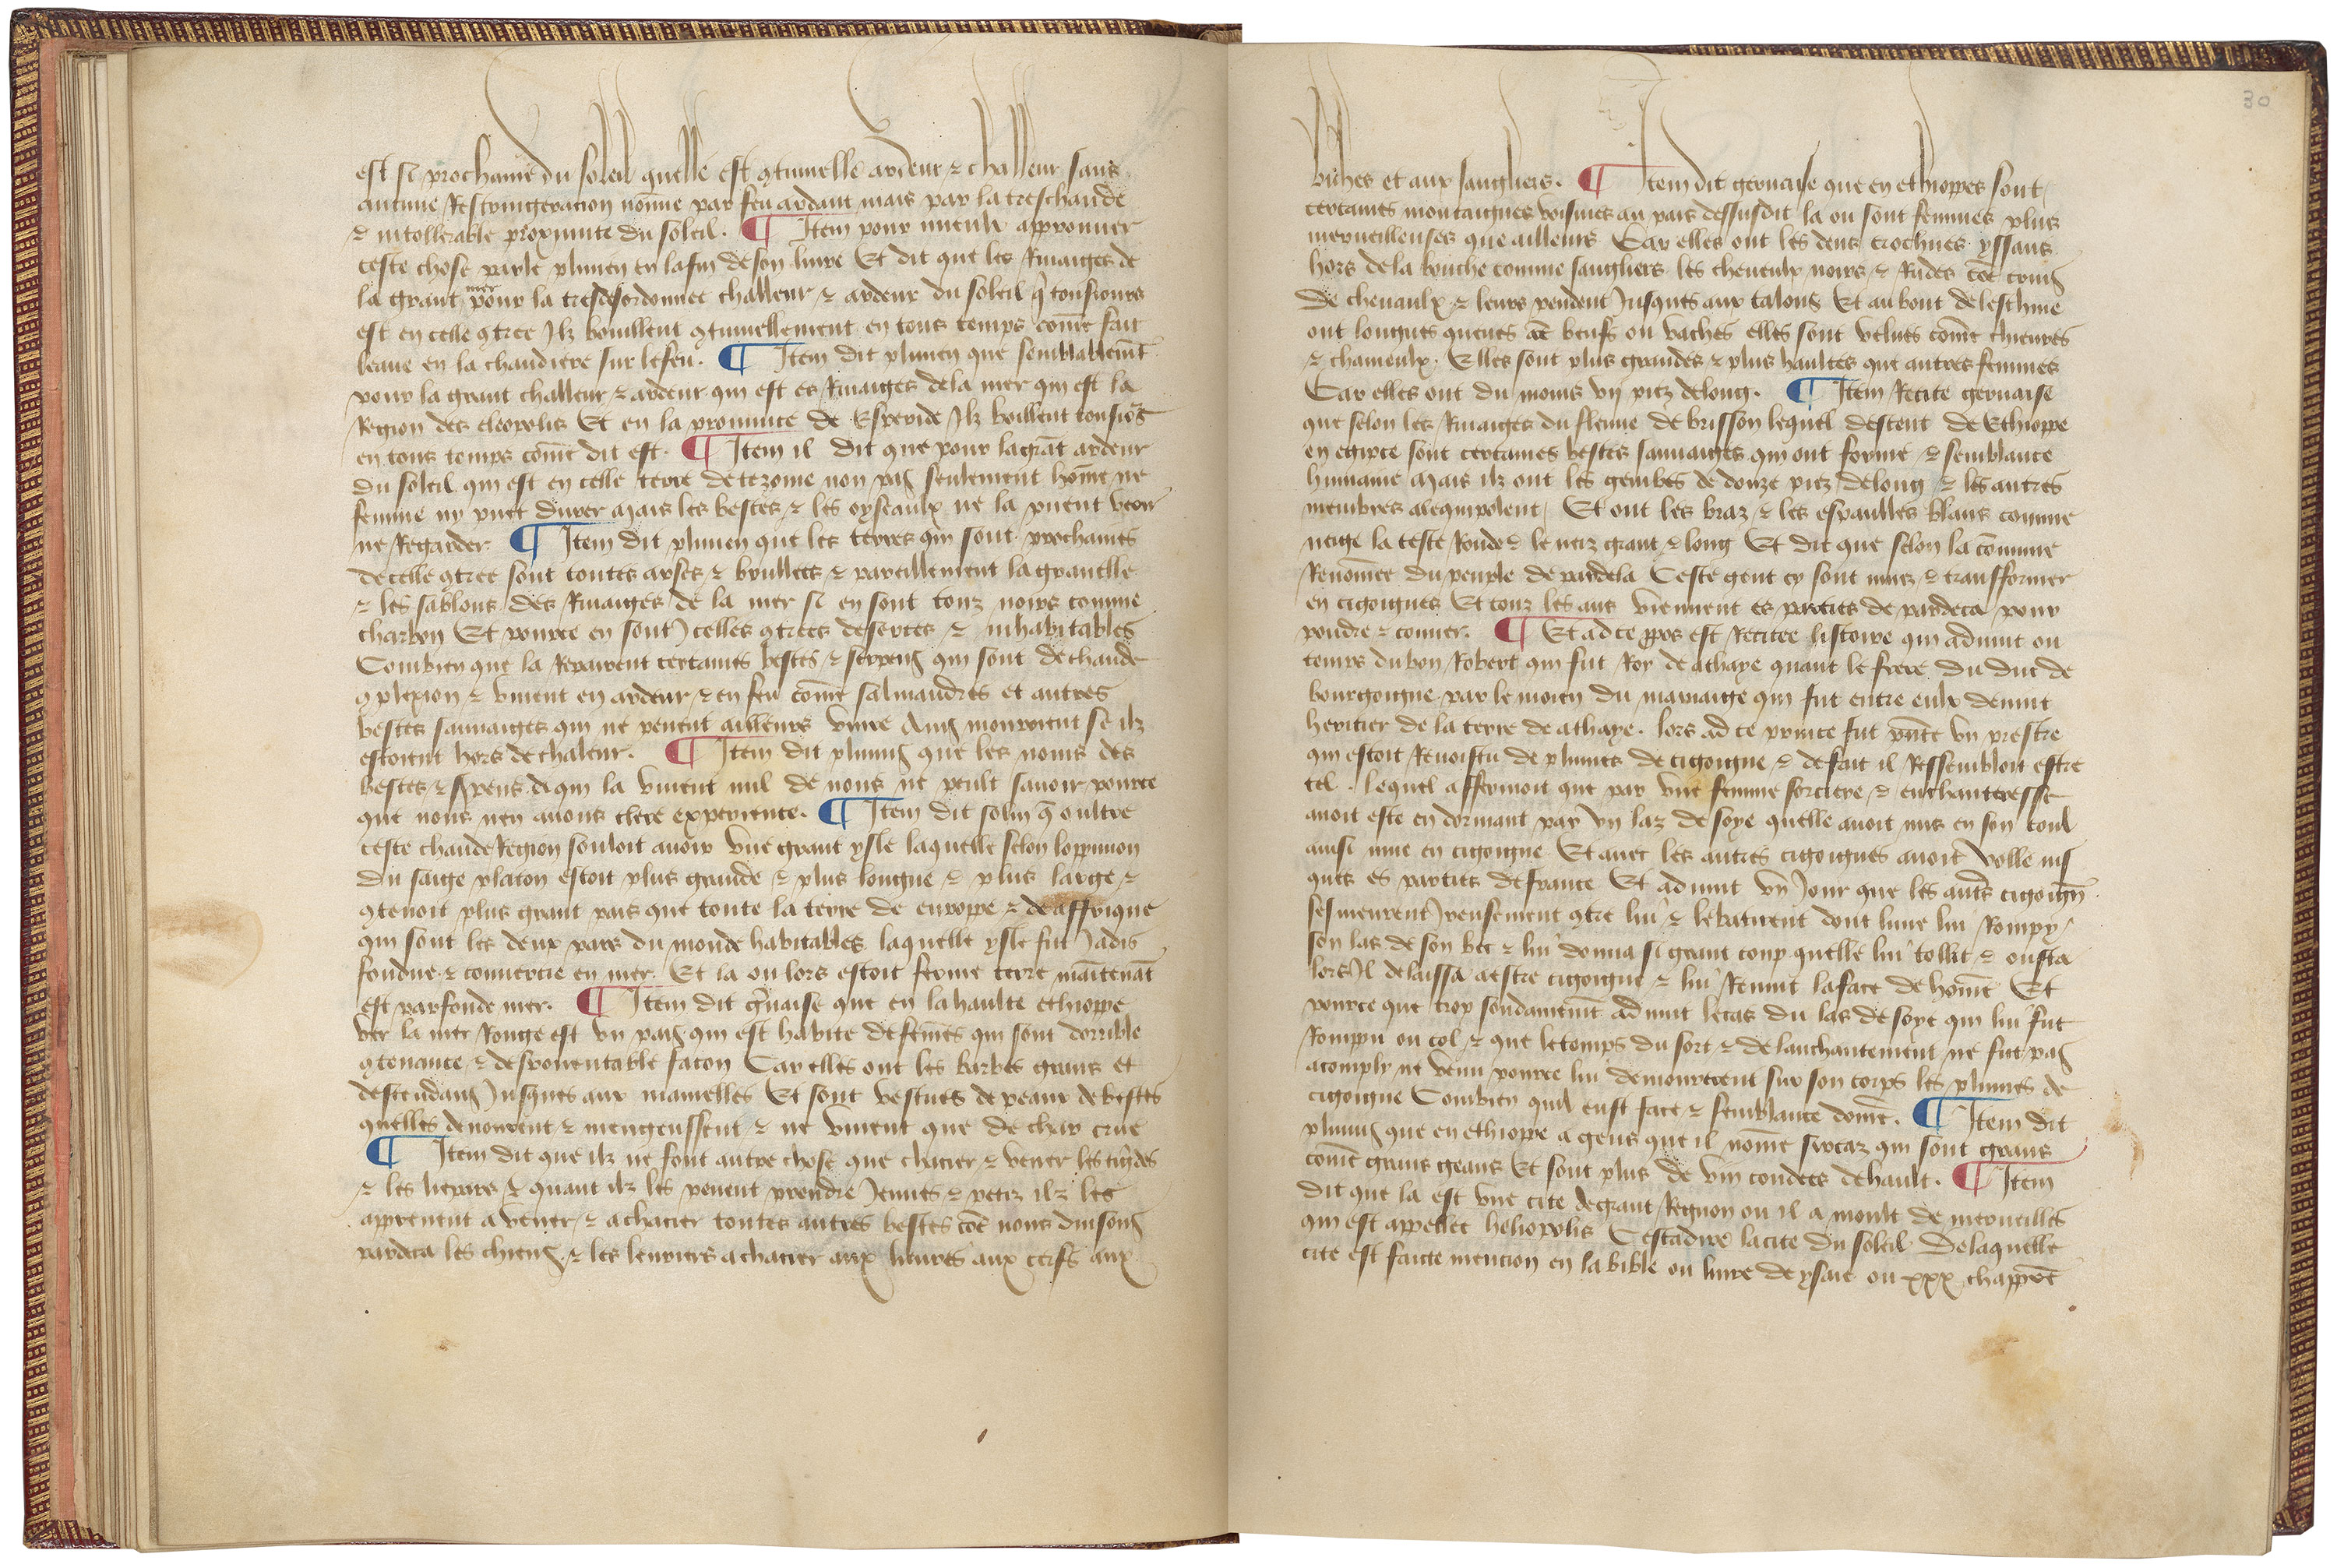 est si prochaine du soleil quelle est 9tinuelle ardeur ⁊ challeur sans
aucune Restringeracion nōmie par feu ardant mais par la treschaude
⁊ intollerable proximite du soleil. ¶ Item pour mieulx approuuer
ceste chose parle plinien en lafin de son liure Et dit que les Riuaiges de
la grant mer pour la tresdesordonnee challeur ⁊ ardeur du soleil q̄ tousiours
est en celle 9tree Ilz bouillent 9tinuellement en tous temps cōme fait
leaue en la chaudiere sur lefeu. ¶ Item dit plinien que semblablemēt
pour la grant challeur ⁊ ardeur qui est es Riuaiges dela mer qui est la
Region des cleopolis Et en la prouince de Esperide Ilz boillent tousio͛s
en tous temps cōme dit est. ¶ Item il dit que pour lagrāt ardeur
du soleil qui est en celle terre detezone non pas seulement hōme ne
femme ny puet durer Mais les bestes ⁊ les oyseaulx ne la puent veoir
ne Regarder. ¶ Item dit plinien que les terres qui sont prochaines
de celle 9tree sont toutes arses ⁊ brullees ⁊ pareillement la grauelle
⁊ les sablons des Riuaiges de la mer si en sont touz noirs comme
charbon Et pource en sont Icelles 9trees desertes ⁊ inhabitables
Combien que la Repairent certaines bestes ⁊ serpens qui sont de chaude
9plexion ⁊ viuent en ardeur ⁊ en feu cōme salmandres et autres
bestes sauuaiges qui ne peuent ailleurs viure Ains mourroient se ilz
estoient hors de chaleur. ¶ Item dit plinius que les noms des
bestes ⁊ s͛pens qui la viuent nul de nous ne peult sauoir pource
que nous nen auons clere experience. ¶ Item dit solin q̄ oultre
ceste chaude Region souloit auoir vne grant ysle laquelle selon loppinion
du saige platon estoit plus grande ⁊ plus longue ⁊ plus large ⁊
9tenoit plus grant pais que toute la terre de europpe ⁊ de affrique
qui sont les deux pars du monde habitables laquelle ysle fut Iadis
fondue ⁊ conuertie en mer. Et la ou lors estoit ferme terre maītenāt
est parfonde mer. ¶ Item dit g͛uaise que en la haulte ethioppe
ver la mer Rouge est vn pais qui est habite de fēmes qui sont dorrible
9tenance ⁊ despouentable facon Car elles ont les barbes grans et
descendans Iusques aux mamelles Et sont vestues de peaux de bestes
quelles deuourent ⁊ mengeussent ⁊ ne viuent que de char crue
¶ Item dit que ilz ne font autre chose que chacier ⁊ vener les
⁊ les liepars ⁊ quant ilz les peuent prendre Ieunes ⁊ petiz ilz les
apprenent a vener ⁊ a chacier toutes autres bestes cōe nous duisons
pardeca les chiens ⁊ les leuriers a chacier aux lieures aux cerfs aux
biches et aux sangliers. ¶ Item dit geruaise que en ethioppes sont
certaines montaignes voisines au pais dessusdit la ou sont femmes plus
merueilleuses que ailleurs Car elles ont les dens crochues yssans
hors dela bouche comme sangliers les cheueulx noirs ⁊ Rudes cōe crins
de cheuaulx ⁊ leurs pendent Iusques aux talons Et au bout de leschine
ont longues queues cōe beufs ou vaches elles sont velues cōme chieures
⁊ chameulx. Elles sont plus grandes ⁊ plus haultes que autres femmes
Car elles ont du moins vii piez delong. ¶ Item Recite geruaise
que selon les Riuaiges du fleuue de brisson lequel descent de Ethioppe
en egipte sont certaines bestes sauuaiges qui ont forme ⁊ semblance
humaine Mais ilz ont les gembes de douze piez delong ⁊ les autres
membres alequipolent Et ont les braz ⁊ les espaulles blans comme
neige la teste Ronde ⁊ le neiz grant ⁊ long Et dit que selon la cōmune
Renōmee du peuple de pardela Ceste gent cy sont muez ⁊ transformez
en cigoignes Et touz les ans viennent es parties de pardeca pour
pondre ⁊ couuer. ¶ Et ad ce ꝓpos est Recitee listoire qui aduint ou
temps dubon Robert qui fut Roy de athaye quant le frere du duc de
bourgoigne par le moien du mariaige qui fut entre eulx deuint
heritier de la terre de athaye. lors ad ce prince fut pn̄te vn prestre
qui estoit Reuestu de plumes de cigoigne ⁊ defait il Ressembloit estre
tel. lequel affermoit que par vne femme sorciere ⁊ enchanteresse
auoit este en dormant par vn laz de soye quelle auoit mis en son coul
ainsi mue en cigoigne Et auec les autres cigoignes auoit volle ius
ques es parties de france Et aduint vn Iour que les aut͛s cigoign͛
sesmeurent Ireusement 9tre lui ⁊ lebatirent dont lune lui Rompy
son las de son bec ⁊ lui donna si grant coup quelle lui tollit ⁊ ousta
lors Il delaissa aestre cigoigne ⁊ lui Reuint laface de hōme Et
pource que trop soudainemēt aduint lecas du las de soye qui lui fut
Rompu ou col ⁊ que letemps du sort ⁊ de lanchantement ne fut pas
acomply ne venu pource lui demourerent sur son corps les plumes de
cigoigne Combien quil eust face ⁊ semblance dōme. ¶ Item dit
plinius que en ethioppe a gens que il nōme sircaz qui sont grans
cōme grans geans Et sont plus de viii coudees dehault. ¶ Item
dit que la est vne cite degrant Regnon ou il a moult de merueilles
qui est appellee heliopolis Cestadire lacite du soleil Delaquelle
cite est faicte mencion en labible ou liure de ysaie ou xxx chappr̄e
30